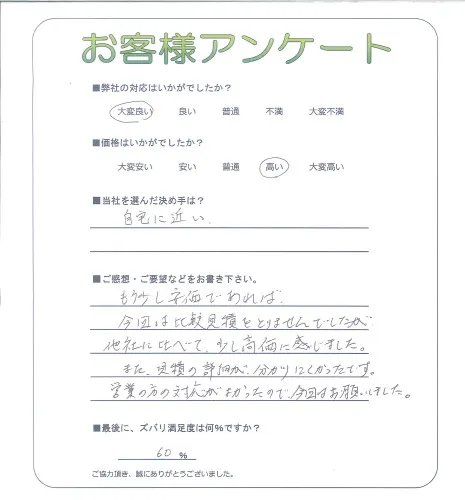 お客様アンケート
■弊社の対応はいかがでしたか？
大変良い 良い 普通 不満 大変不満
■価格はいかがでしたか？
大変安い 安い 普通 高い 大変高い
■当社を選んだ決め手は？
自宅に近い.
■ご感想・ご要望などをお書き下さい。
もう少し安価であれば.
今回は比較見積をとりませんでしたが
他社に比べて、少し高価に感じました。
また、見積の詳細が、分かりにくかったです。
営業の方の対応がよかったので、今回はお願いしました。
■最後に、ズバリ満足度は何%ですか？
60 %
ご協力頂き、誠にありがとうございました。